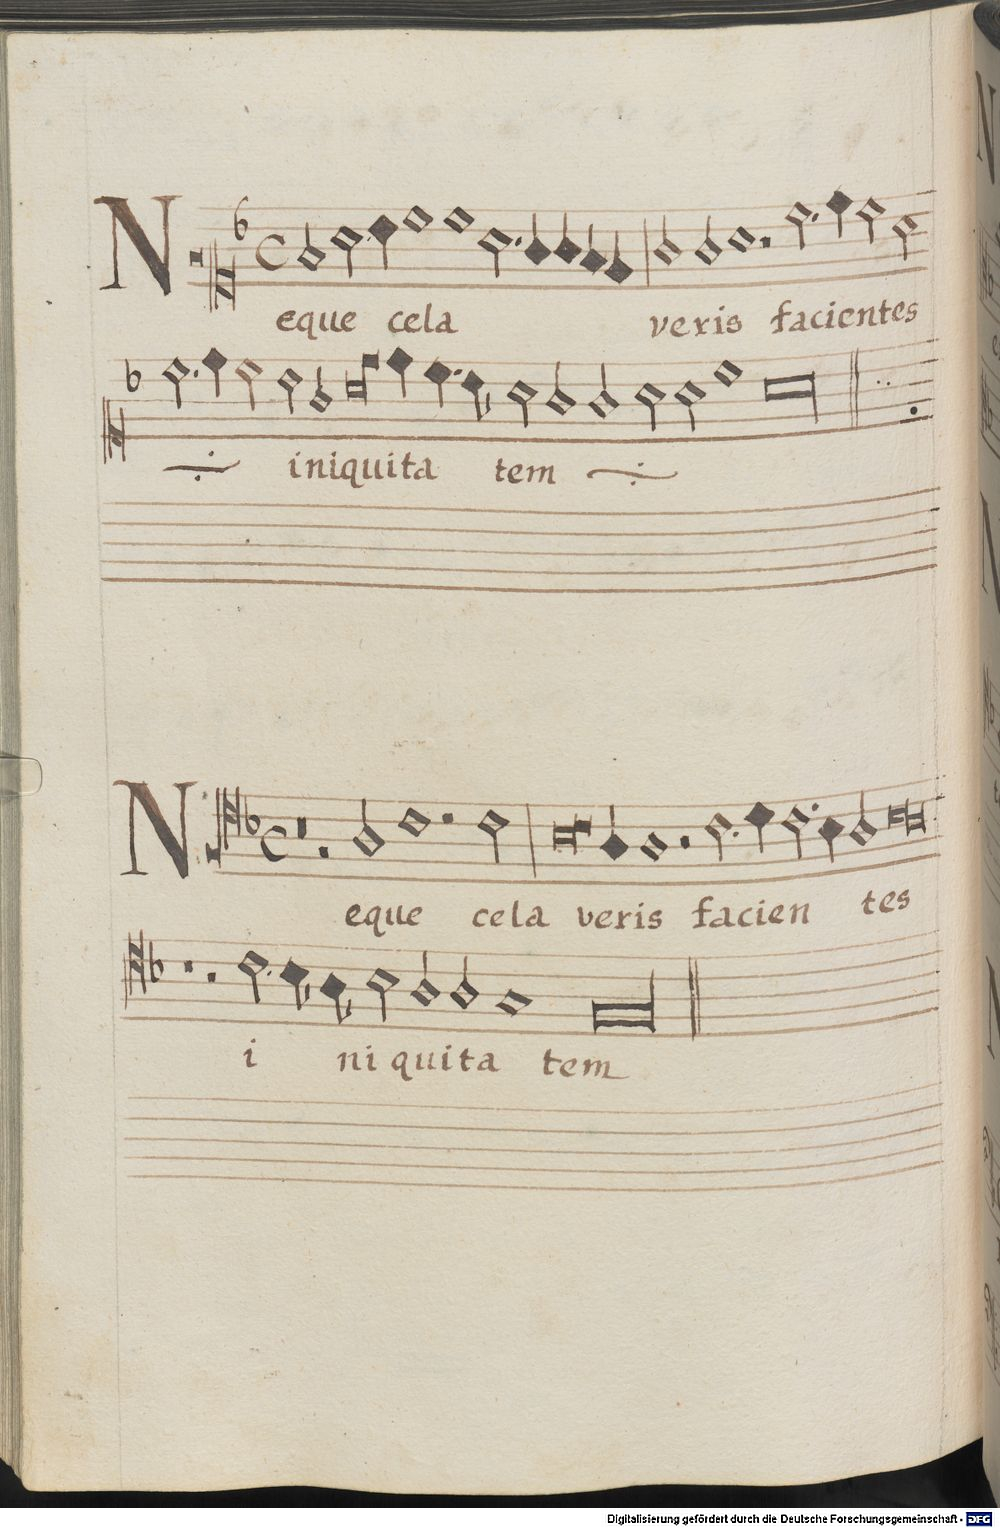 Neque cela veris facientes
iniquita tem
Neque cela veris facien tes
i ni quita tem
Digitalisierung gefördert durch die Deutsche Forschungsgemeinschaft - DFG